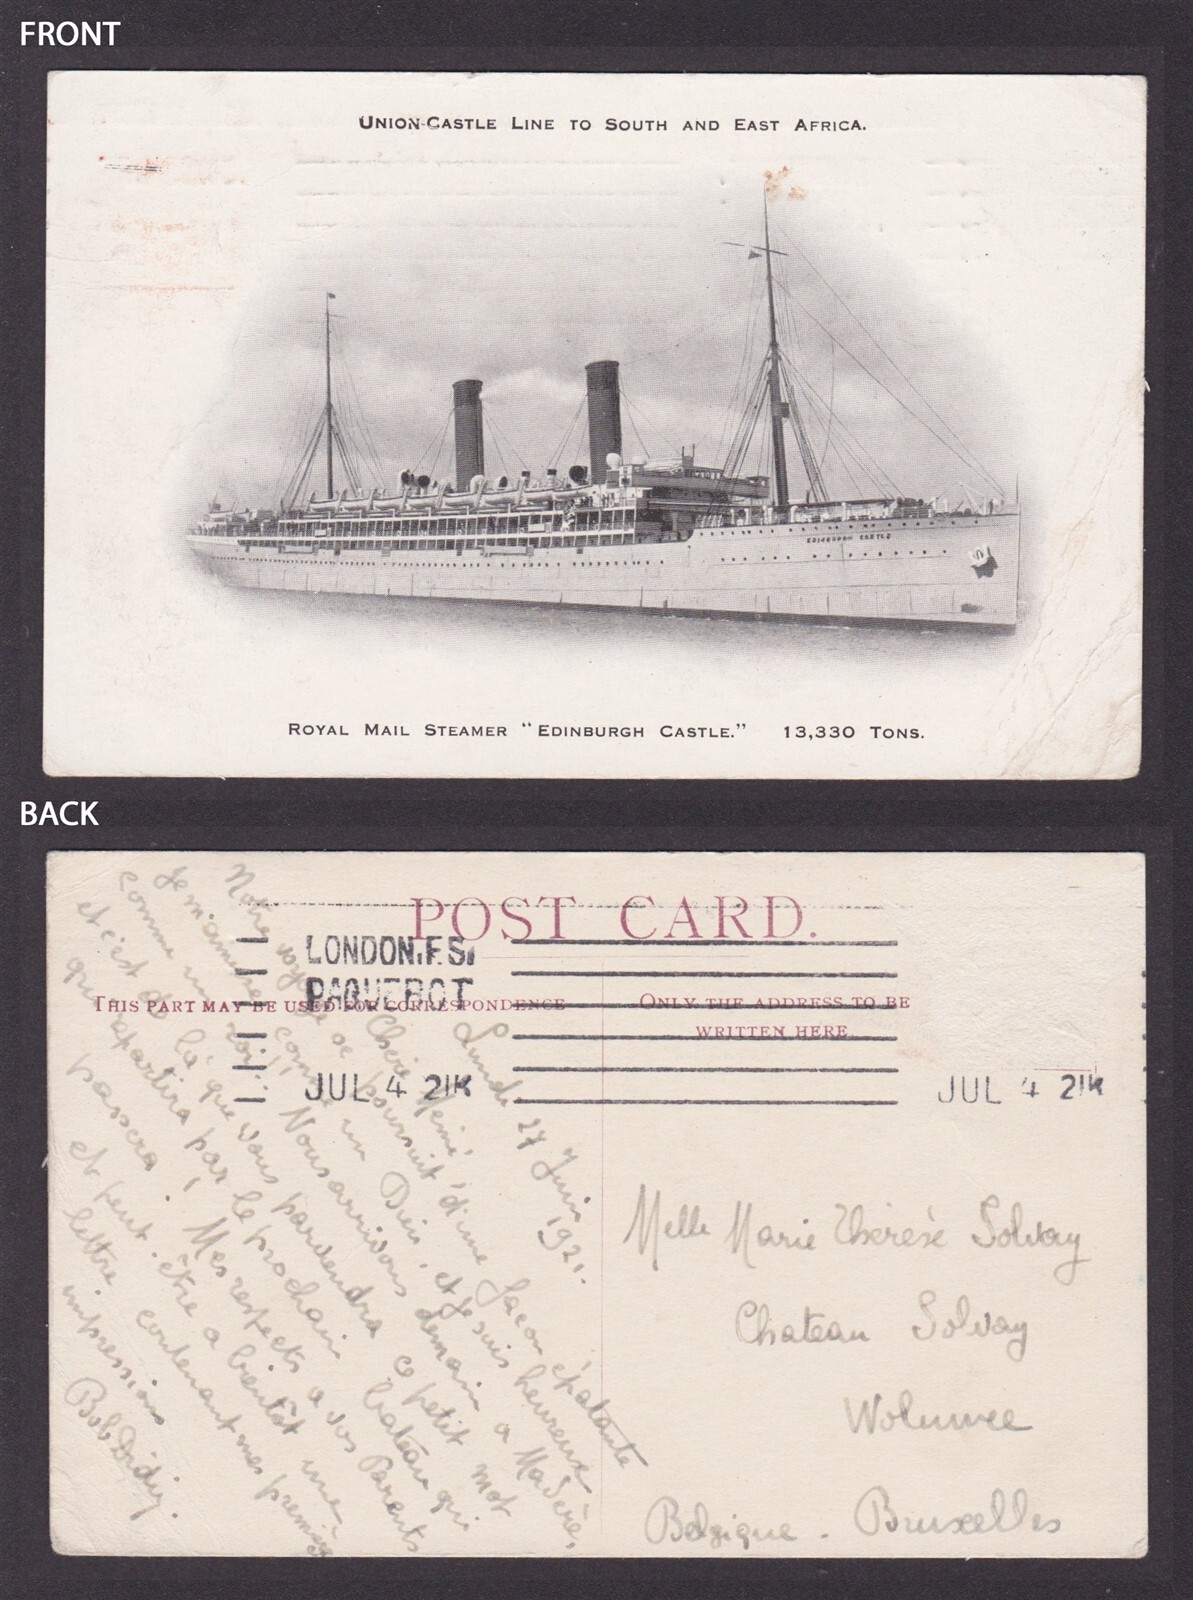 FRONT
UNION-CASTLE LINE TO SOUTH AND EAST AFRICA.
EDINBURGH CASTLE
ROYAL MAIL STEAMER "EDINBURGH CASTLE." 13,330 TONS.
BACK
POST CARD.
LONDON.F.S.
PAQUEBOT
JUL 4 21K
JUL 4 21K
THIS PART MAY BE USED FOR CORRESPONDENCE
ONLY THE ADDRESS TO BE
WRITTEN HERE.
Lundi 27 Juin 1921.
Chère
Notre voyage se poursuit d'une façon épatante
Je m'amuse comme un Dieu, et je suis heureuse
comme un roi! Nous arrivons demain à Madère,
et c'est de là que vous parviendra ce petit mot
qui partira par le prochain bateau qui
passera! Mes respects à vos Parents
et peut-être à bientôt une
lettre contenant mes premières
impressions
Bob
Melle Marie Thérèse Solvay
Chateau Solvay
Woluwee
Belgique - Bruxelles